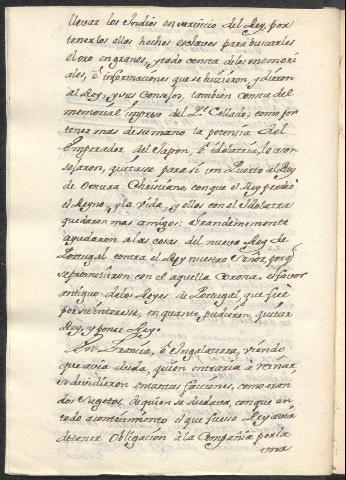 llevar los Indios en servicio del Rey, por
tenerlos ellos hechos esclavos para buscarles
el oro en granos, y todo consta de los memori
ales, è informaciones que se hizieron, y dieron
al Rey, y sus Consejos, tambien consta del
memorial impreso del Pe. Collado; como por
tener mas de su mano la potencia del
Emperador del Japon, è idolatria, le acon
sejaron, quitasse para si un Puerto al Rey
de Omura Christiano, con que el Rey perdiò
el Reyno, y la vida, y ellos con el Idolatra
quedaron mas amigos: Grandemente
ayudaron a las cosas del nuevo Rey de
Portugal contra el Rey nuestro Señor porq
se prometieron con el aquella Corona, el favor
antiguo de los Reyes de Portugal, que fuè
por su interesse, en quanto pudieron, quitar
Rey, y poner Rey.
En Francia, è Ingalaterra, viendo
que avia duda, quien entraria à reinar,
se dividieron en tantas facciones, como eran
los sugetos, de quien se dudava, con que en
todo acontecimiento el que fuesse Rey avia
de tener Obligacion à la Compañia por la
una